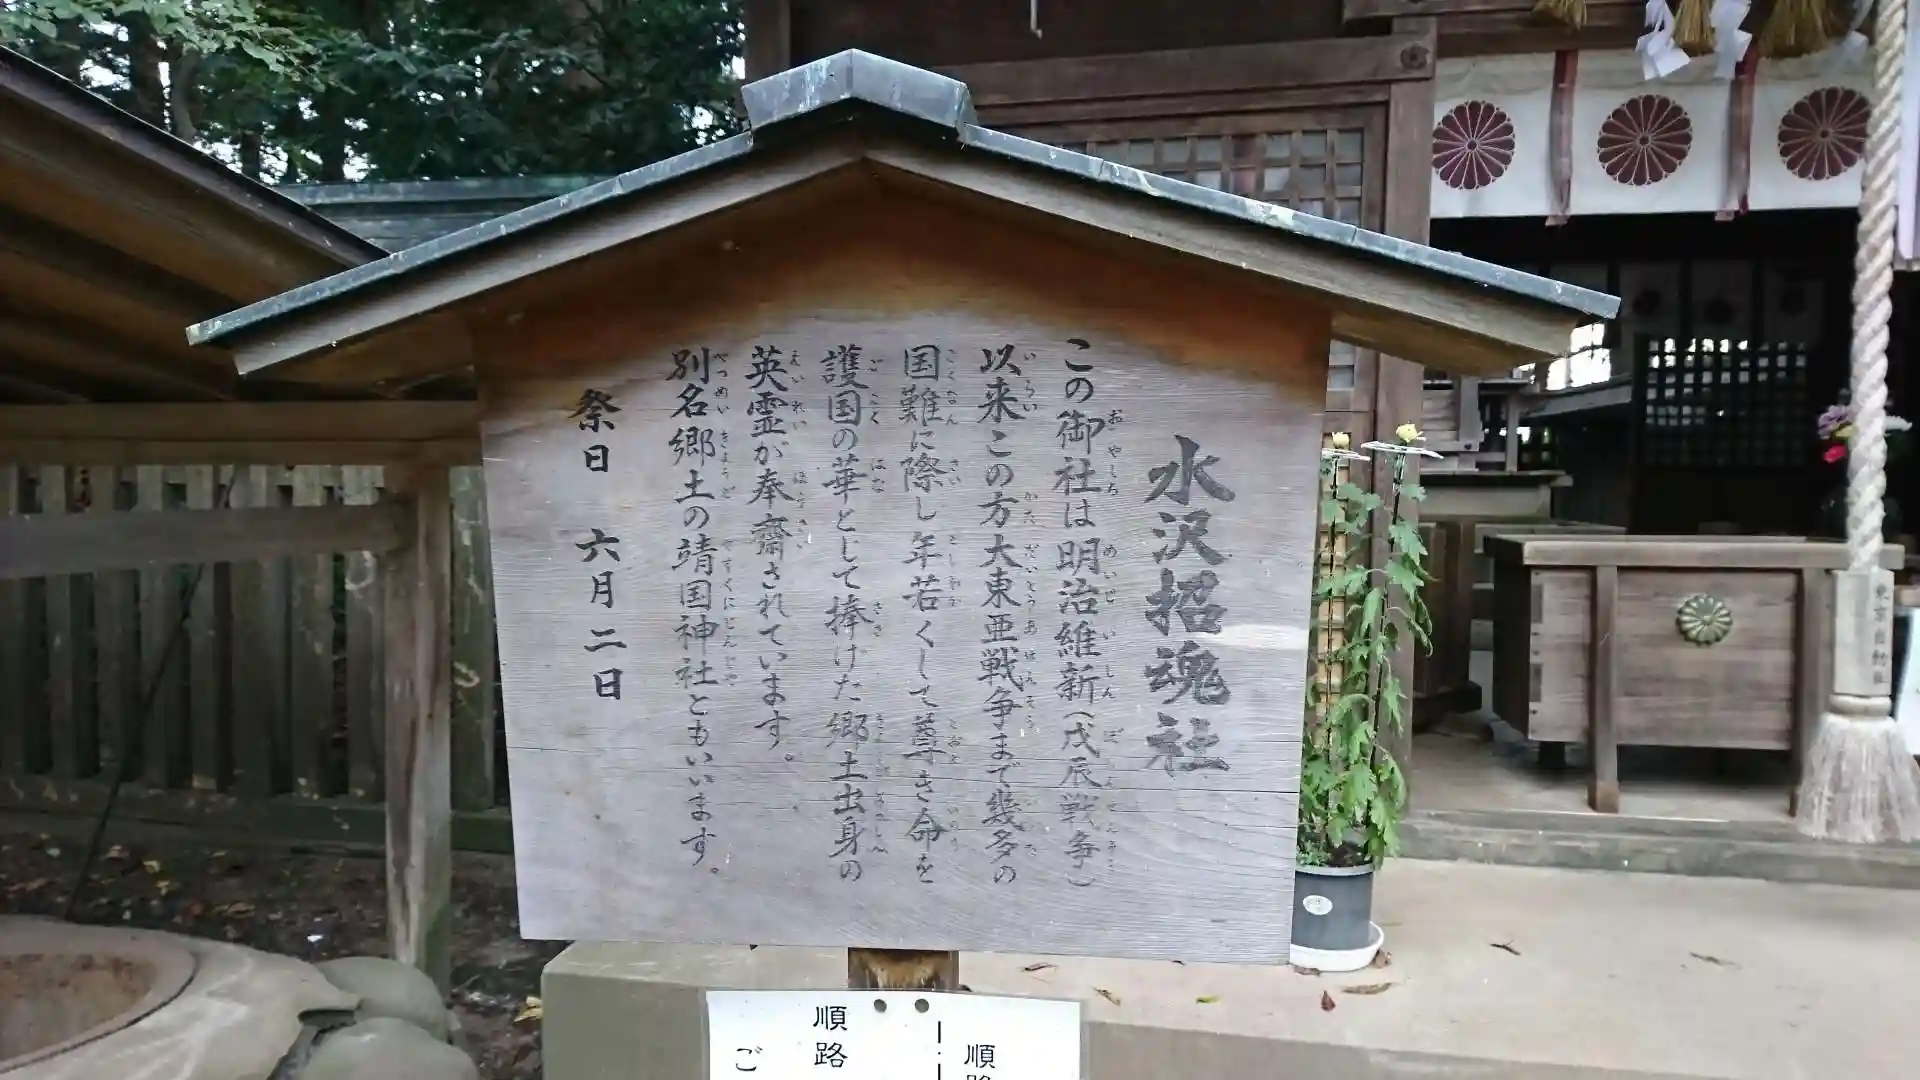 水沢招魂社
この御社は明治維新(戊辰戦争)
以来この方大東亜戦争まで幾多の
国難に際し年若くして尊き命を
護国の華として捧げた郷土出身の
英霊が奉齋されています。
別名郷土の靖国神社ともいいます。
祭日 六月二日
順路
順路
ご